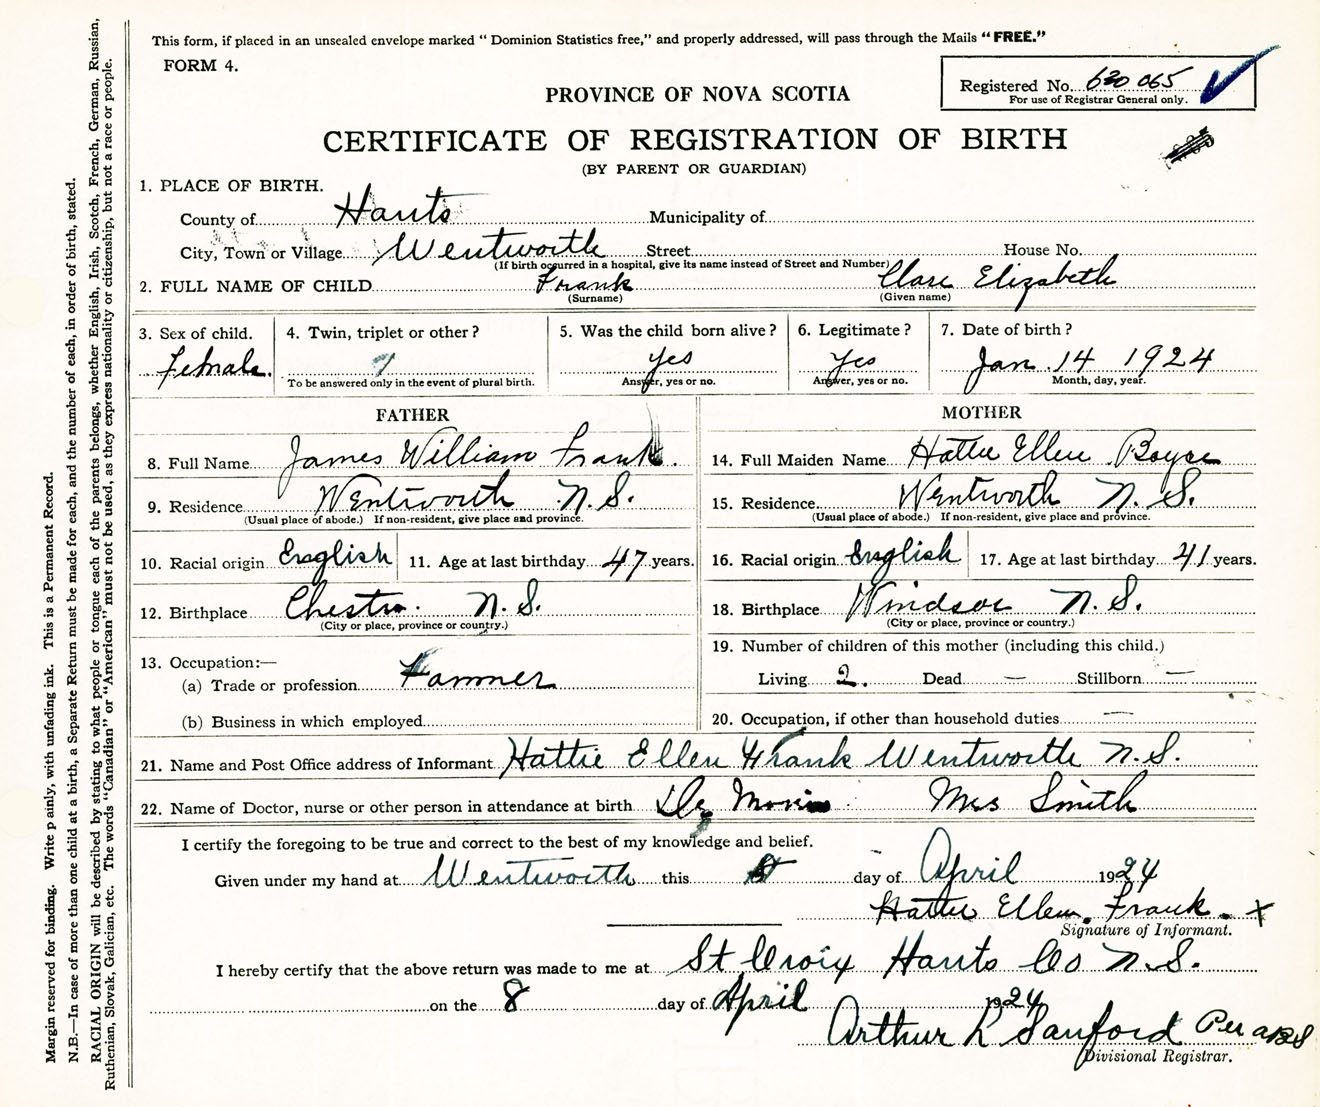 This form, if placed in an unsealed envelope marked “ Dominion Statistics free,” and properly addressed, will pass through the Mails “ FREE.”
FORM 4.
Registered No. 630 065
For use of Registrar General only.
PROVINCE OF NOVA SCOTIA
CERTIFICATE OF REGISTRATION OF BIRTH
(BY PARENT OR GUARDIAN)
1. PLACE OF BIRTH.
County of Hants Municipality of
City, Town or Village Wentworth Street House No.
(If birth occurred in a hospital, give its name instead of Street and Number)
2. FULL NAME OF CHILD Frank Clare Elizabeth
(Surname) (Given name)
3. Sex of child. 4. Twin, triplet or other ? 5. Was the child born alive ? 6. Legitimate ? 7. Date of birth ?
Female. yes Yes Jan. 14 1924
To be answered only in the event of plural birth. Answer, yes or no. Answer, yes or no. Month, day, year.
FATHER
8. Full Name James William Frank.
9. Residence Wentworth N.S.
(Usual place of abode.) If non-resident, give place and province.
10. Racial origin English 11. Age at last birthday 47 years.
12. Birthplace Chester. N.S.
(City or place, province or country.)
13. Occupation:—
(a) Trade or profession Farmer
(b) Business in which employed
MOTHER
14. Full Maiden Name Hattie Ellen Boyce
15. Residence Wentworth N.S.
(Usual place of abode.) If non-resident, give place and province.
16. Racial origin English 17. Age at last birthday 41 years.
18. Birthplace Windsor N.S.
(City or place, province or country.)
19. Number of children of this mother (including this child.)
Living 2. Dead — Stillborn —
20. Occupation, if other than household duties —
21. Name and Post Office address of Informant Hattie Ellen Frank Wentworth N.S.
22. Name of Doctor, nurse or other person in attendance at birth Mrs Smith
I certify the foregoing to be true and correct to the best of my knowledge and belief.
Given under my hand at Wentworth this day of April 1924
Hattie Ellen. Frank. x
Signature of Informant.
I hereby certify that the above return was made to me at St Croix Hants Co N.S.
on the 8 day of April 1924
Arthur L Sanford Per
Divisional Registrar.
Margin reserved for binding. Write p ainly, with unfading ink. This is a Permanent Record.
N.B.—In case of more than one child at a birth, a Separate Return must be made for each, and the number of each, in order of birth, stated.
RACIAL ORIGIN will be described by stating to what people or tongue each of the parents belongs, whether English, Irish, Scotch, French, German, Russian,
Ruthenian, Slovak, Galician, etc. The words “Canadian” or “American” must not be used, as they express nationality or citizenship, but not a race or people.